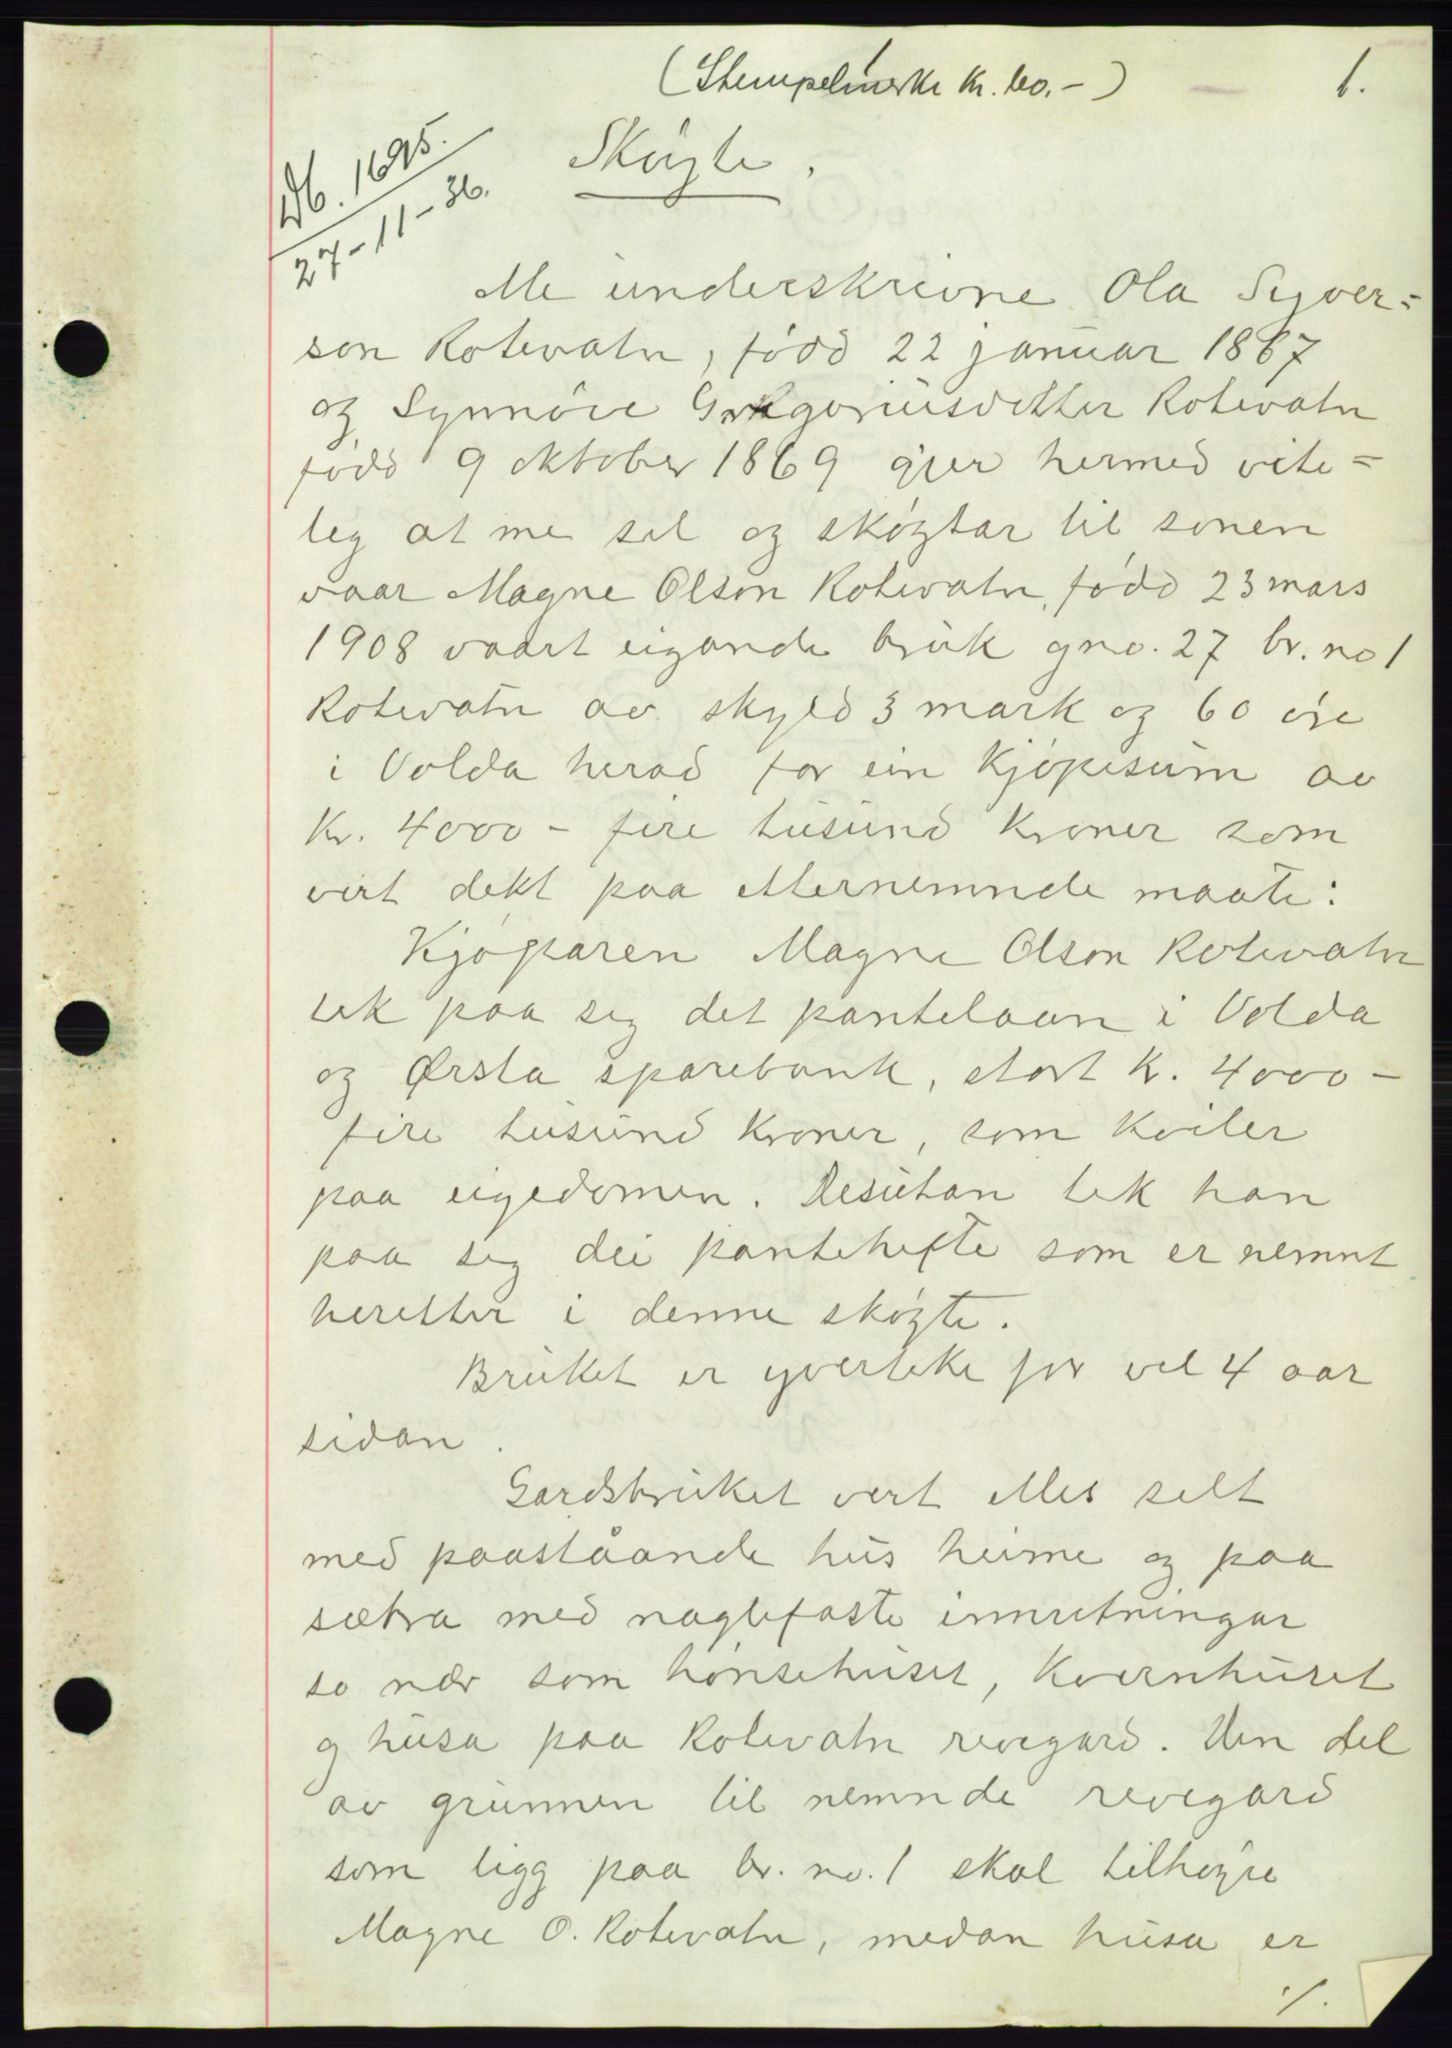 (Stempelmerke kr. 60.-)
1.
Db. 1695.
27-11-36.
Skøyte.
Me underskrivne Ola Syver=
son Rotevatn, fødd 22 januar 1867
og Synnöve Gregoriusdotter Rotevatn
född 9 oktober 1869 gjer hermed vite=
leg at me sel og skøytar til sonen
vaar Magne Olson Rotevatn, född 23 mars
1908 vaart eigande bruk gno. 27 br. no 1
Rotevatn av skyld 3 mark og 60 öre
i Volda herad for ein kjöpesum av
Kr. 4000 - fire tusund kroner som
vert dekt paa etternemnde maate:
Kjöparen Magne Olson Rotevatn
tek paa seg det pantelaan i Volda
og Ørsta sparebank, stort kr. 4000 -
fire tusund kroner, som kviler
paa eigedomen. Desutan tek han
paa seg dei pantehefte som er nemnt
heretter i denne skøyte.
Bruket er yverteke for vel 4 aar
sidan.
Gardsbruket vert elles selt
med paastaaande hus heime og paa
sætra med naglefaste innretningar
so nær som hönsehuset, kvernhuset
og husa paa Rotevatn revegard. Den del
av grunnen til nemnde revegard
som ligg paa br. no. 1 skal tilhøyre
Magne O. Rotevatn, medan husa er
./.